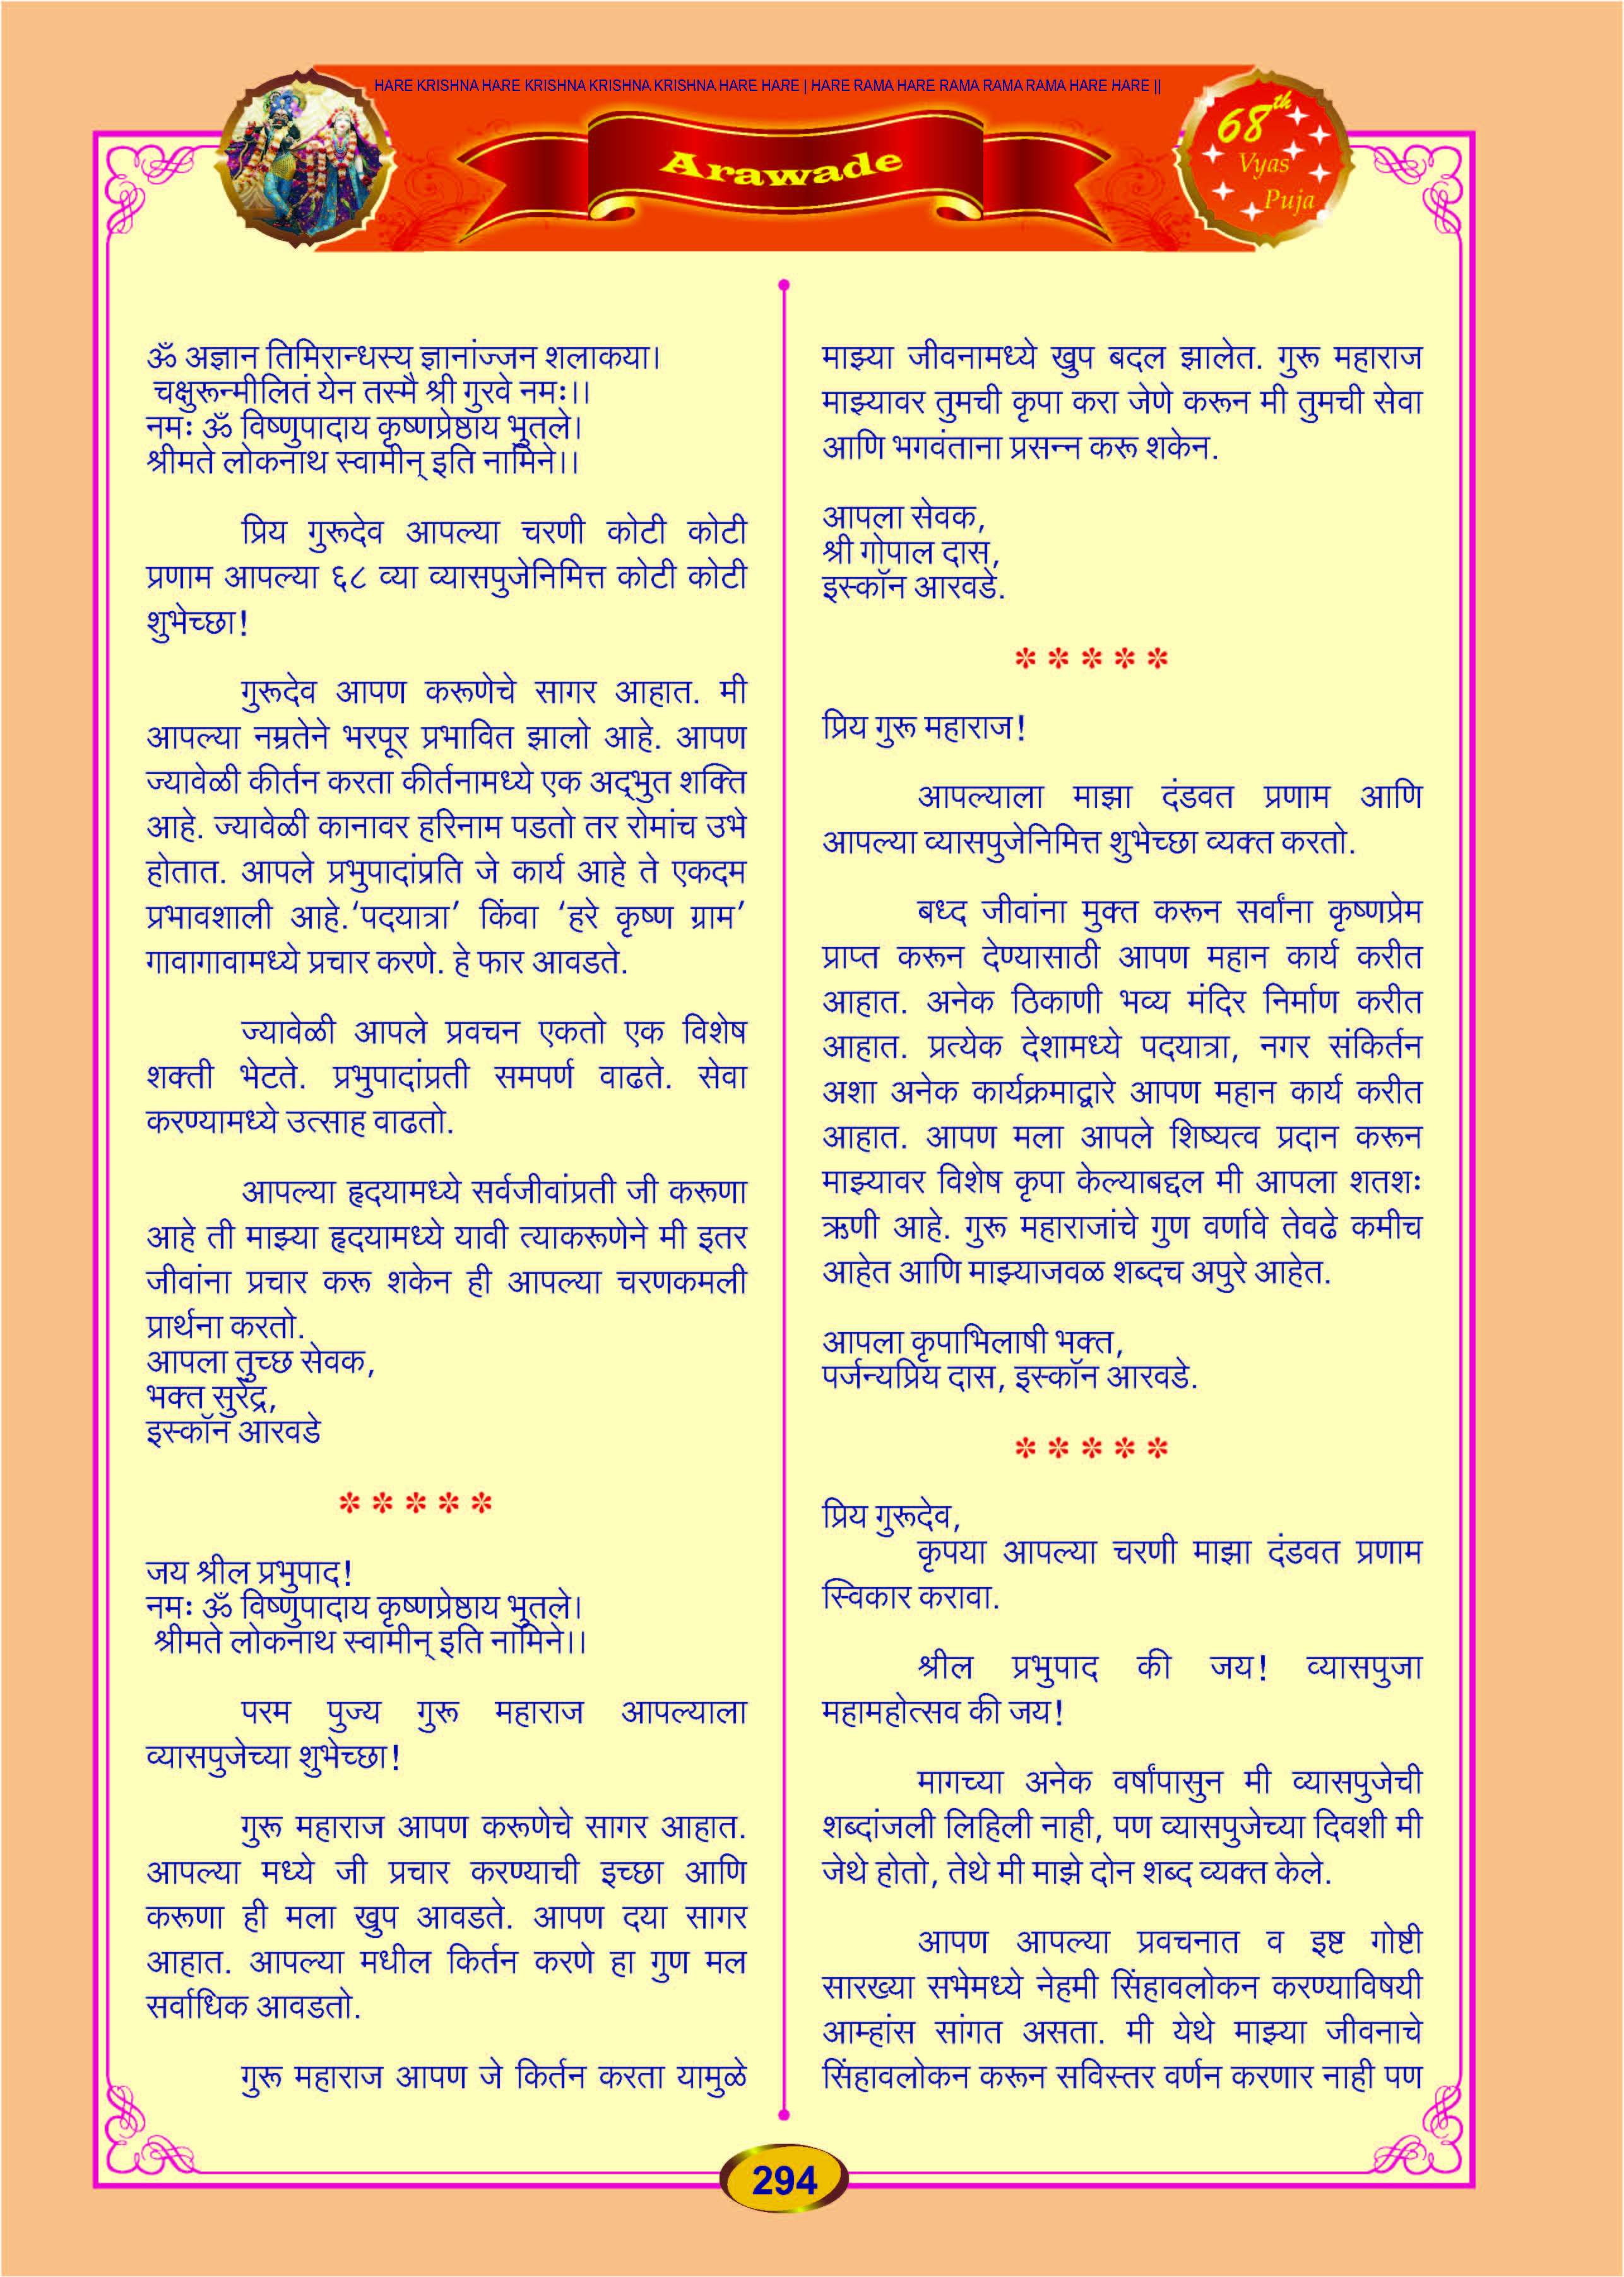 HARE KRISHNA HARE KRISHNA KRISHNA KRISHNA HARE HARE | HARE RAMA HARE RAMA RAMA RAMA HARE HARE ||
Arawade
68th
Vyas
Puja
ॐ अज्ञान तिमिरान्धस्य ज्ञानांज्जन शलाकया।
चक्षुरून्मीलितं येन तस्मै श्री गुरवे नमः।।
नमः ॐ विष्णुपादाय कृष्णप्रेष्ठाय भुतले।
श्रीमते लोकनाथ स्वामीन् इति नामिने।।
प्रिय गुरूदेव आपल्या चरणी कोटी कोटी
प्रणाम आपल्या ६८ व्या व्यासपुजेनिमित्त कोटी कोटी
शुभेच्छा!
गुरूदेव आपण करूणेचे सागर आहात. मी
आपल्या नम्रतेने भरपूर प्रभावित झालो आहे. आपण
ज्यावेळी कीर्तन करता कीर्तनामध्ये एक अद्‌भुत शक्ति
आहे. ज्यावेळी कानावर हरिनाम पडतो तर रोमांच उभे
होतात. आपले प्रभुपादांप्रति जे कार्य आहे ते एकदम
प्रभावशाली आहे.‘पदयात्रा’ किंवा ‘हरे कृष्ण ग्राम’
गावागावामध्ये प्रचार करणे. हे फार आवडते.
ज्यावेळी आपले प्रवचन एकतो एक विशेष
शक्ती भेटते. प्रभुपादांप्रती समपर्ण वाढते. सेवा
करण्यामध्ये उत्साह वाढतो.
आपल्या हृदयामध्ये सर्वजीवांप्रती जी करूणा
आहे ती माझ्या हृदयामध्ये यावी त्याकरूणेने मी इतर
जीवांना प्रचार करू शकेन ही आपल्या चरणकमली
प्रार्थना करतो.
आपला तुच्छ सेवक,
भक्त सुरेंद्र,
इस्कॉन आरवडे
* * * * *
जय श्रील प्रभुपाद!
नमः ॐ विष्णुपादाय कृष्णप्रेष्ठाय भुतले।
श्रीमते लोकनाथ स्वामीन् इति नामिने।।
परम पुज्य गुरू महाराज आपल्याला
व्यासपुजेच्या शुभेच्छा!
गुरू महाराज आपण करूणेचे सागर आहात.
आपल्या मध्ये जी प्रचार करण्याची इच्छा आणि
करूणा ही मला खुप आवडते. आपण दया सागर
आहात. आपल्या मधील किर्तन करणे हा गुण मल
सर्वाधिक आवडतो.
गुरू महाराज आपण जे किर्तन करता यामुळे
माझ्या जीवनामध्ये खुप बदल झालेत. गुरू महाराज
माझ्यावर तुमची कृपा करा जेणे करून मी तुमची सेवा
आणि भगवंताना प्रसन्न करू शकेन.
आपला सेवक,
श्री गोपाल दास,
इस्कॉन आरवडे.
* * * * *
प्रिय गुरू महाराज!
आपल्याला माझा दंडवत प्रणाम आणि
आपल्या व्यासपुजेनिमित्त शुभेच्छा व्यक्त करतो.
बध्द जीवांना मुक्त करून सर्वांना कृष्णप्रेम
प्राप्त करून देण्यासाठी आपण महान कार्य करीत
आहात. अनेक ठिकाणी भव्य मंदिर निर्माण करीत
आहात. प्रत्येक देशामध्ये पदयात्रा, नगर संकिर्तन
अशा अनेक कार्यक्रमाद्वारे आपण महान कार्य करीत
आहात. आपण मला आपले शिष्यत्व प्रदान करून
माझ्यावर विशेष कृपा केल्याबद्दल मी आपला शतशः
ऋणी आहे. गुरू महाराजांचे गुण वर्णावे तेवढे कमीच
आहेत आणि माझ्याजवळ शब्दच अपुरे आहेत.
आपला कृपाभिलाषी भक्त,
पर्जन्यप्रिय दास, इस्कॉन आरवडे.
* * * * *
प्रिय गुरूदेव,
कृपया आपल्या चरणी माझा दंडवत प्रणाम
स्विकार करावा.
श्रील प्रभुपाद की जय! व्यासपुजा
महामहोत्सव की जय!
मागच्या अनेक वर्षांपासुन मी व्यासपुजेची
शब्दांजली लिहिली नाही, पण व्यासपुजेच्या दिवशी मी
जेथे होतो, तेथे मी माझे दोन शब्द व्यक्त केले.
आपण आपल्या प्रवचनात व इष्ट गोष्टी
सारख्या सभेमध्ये नेहमी सिंहावलोकन करण्याविषयी
आम्हांस सांगत असता. मी येथे माझ्या जीवनाचे
सिंहावलोकन करून सविस्तर वर्णन करणार नाही पण
294